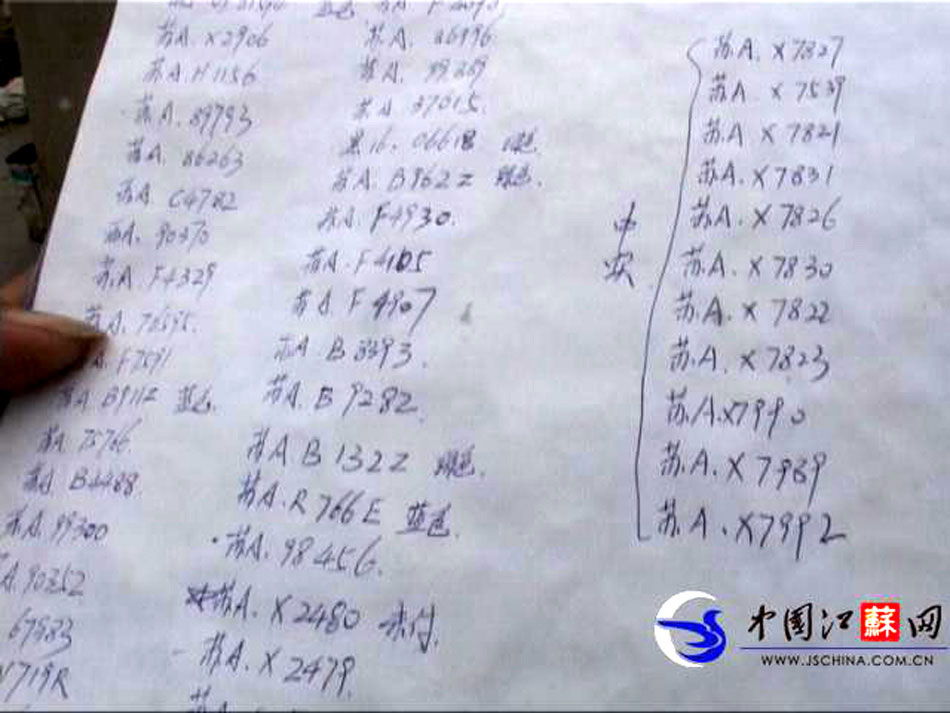 苏A.X2906
苏A.H1156
苏A.89793
苏A.86263
苏A.C4782
苏A.90370
苏A.F4329
苏A.70595.
A.F7591
苏A.B911Z 蓝色.
苏A.75766
苏A.B4488.
苏A.99300
A.90352
67983
719R
苏A.86996
苏A.99389
苏A.37015.
黑16.06618
苏A.B962Z
苏A.F4930.
苏A.F4105
苏A.F4907
苏A.B8393.
苏A.B9282.
苏A B132Z
苏A.R766E 蓝色.
·苏A.98456.
苏A.X2480 未付.
苏A.X2479.
中
苏A.X7827
苏A.X7539
苏A.X7821
苏A.X7831
苏A.X7826
苏A.X7830
苏A.X7822
苏A.X7823
苏.A.X7990
苏.A.X7989
苏A.X7992
中国江蘇网
WWW.JSCHINA.COM.CN